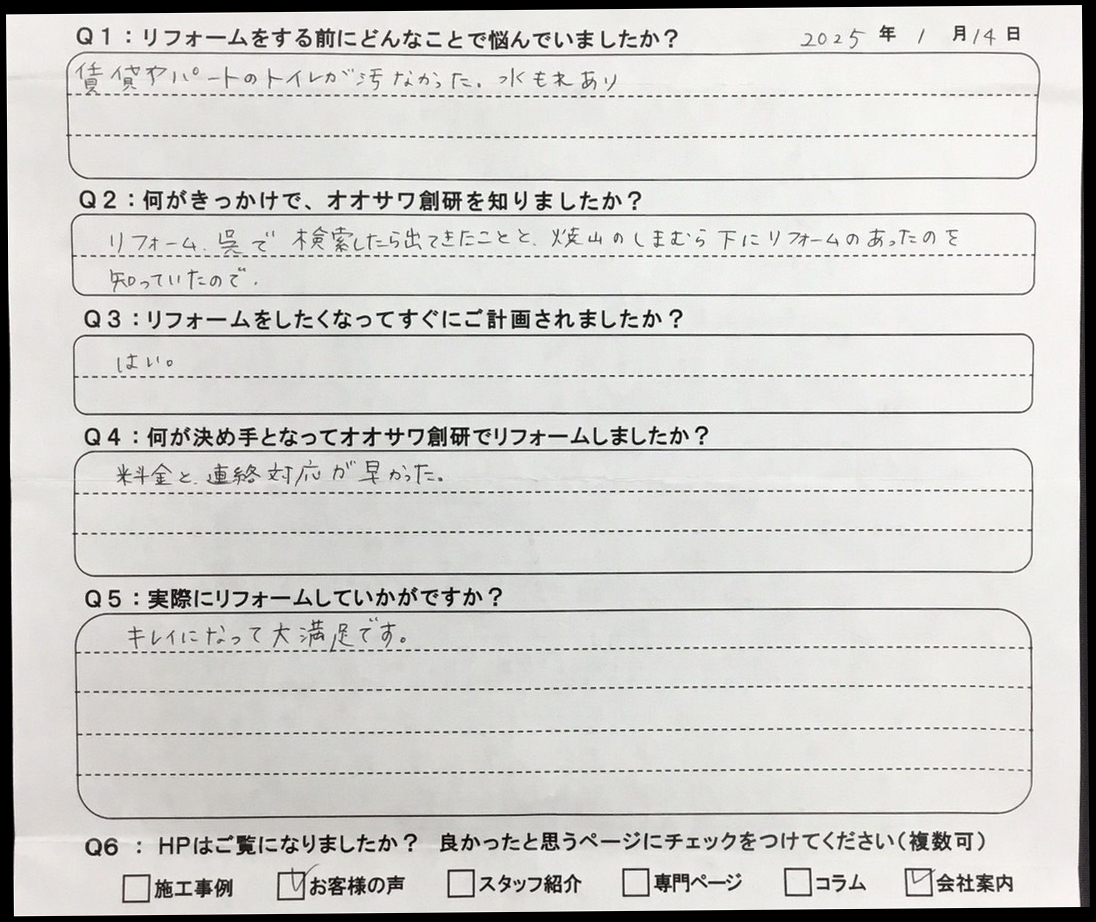 Q1：リフォームをする前にどんなことで悩んでいましたか？ 2025 年 1 月 14 日
賃貸やパートのトイレが汚なかった。水もれあり
Q2：何がきっかけで、オオサワ創研を知りましたか？
リフォーム、呉で 検索したら出てきたことと、焼山のしまむら下にリフォームのあったのを
知っていたので、
Q3：リフォームをしたくなってすぐにご計画されましたか？
はい。
Q4：何が決め手となってオオサワ創研でリフォームしましたか？
料金と、連絡対応が早かった。
Q5：実際にリフォームしていかがですか？
キレイになって大満足です。
Q6 ： HPはご覧になりましたか？ 良かったと思うページにチェックをつけてください（複数可）
□施工事例 ☑お客様の声 □スタッフ紹介 □専門ページ □コラム ☑会社案内